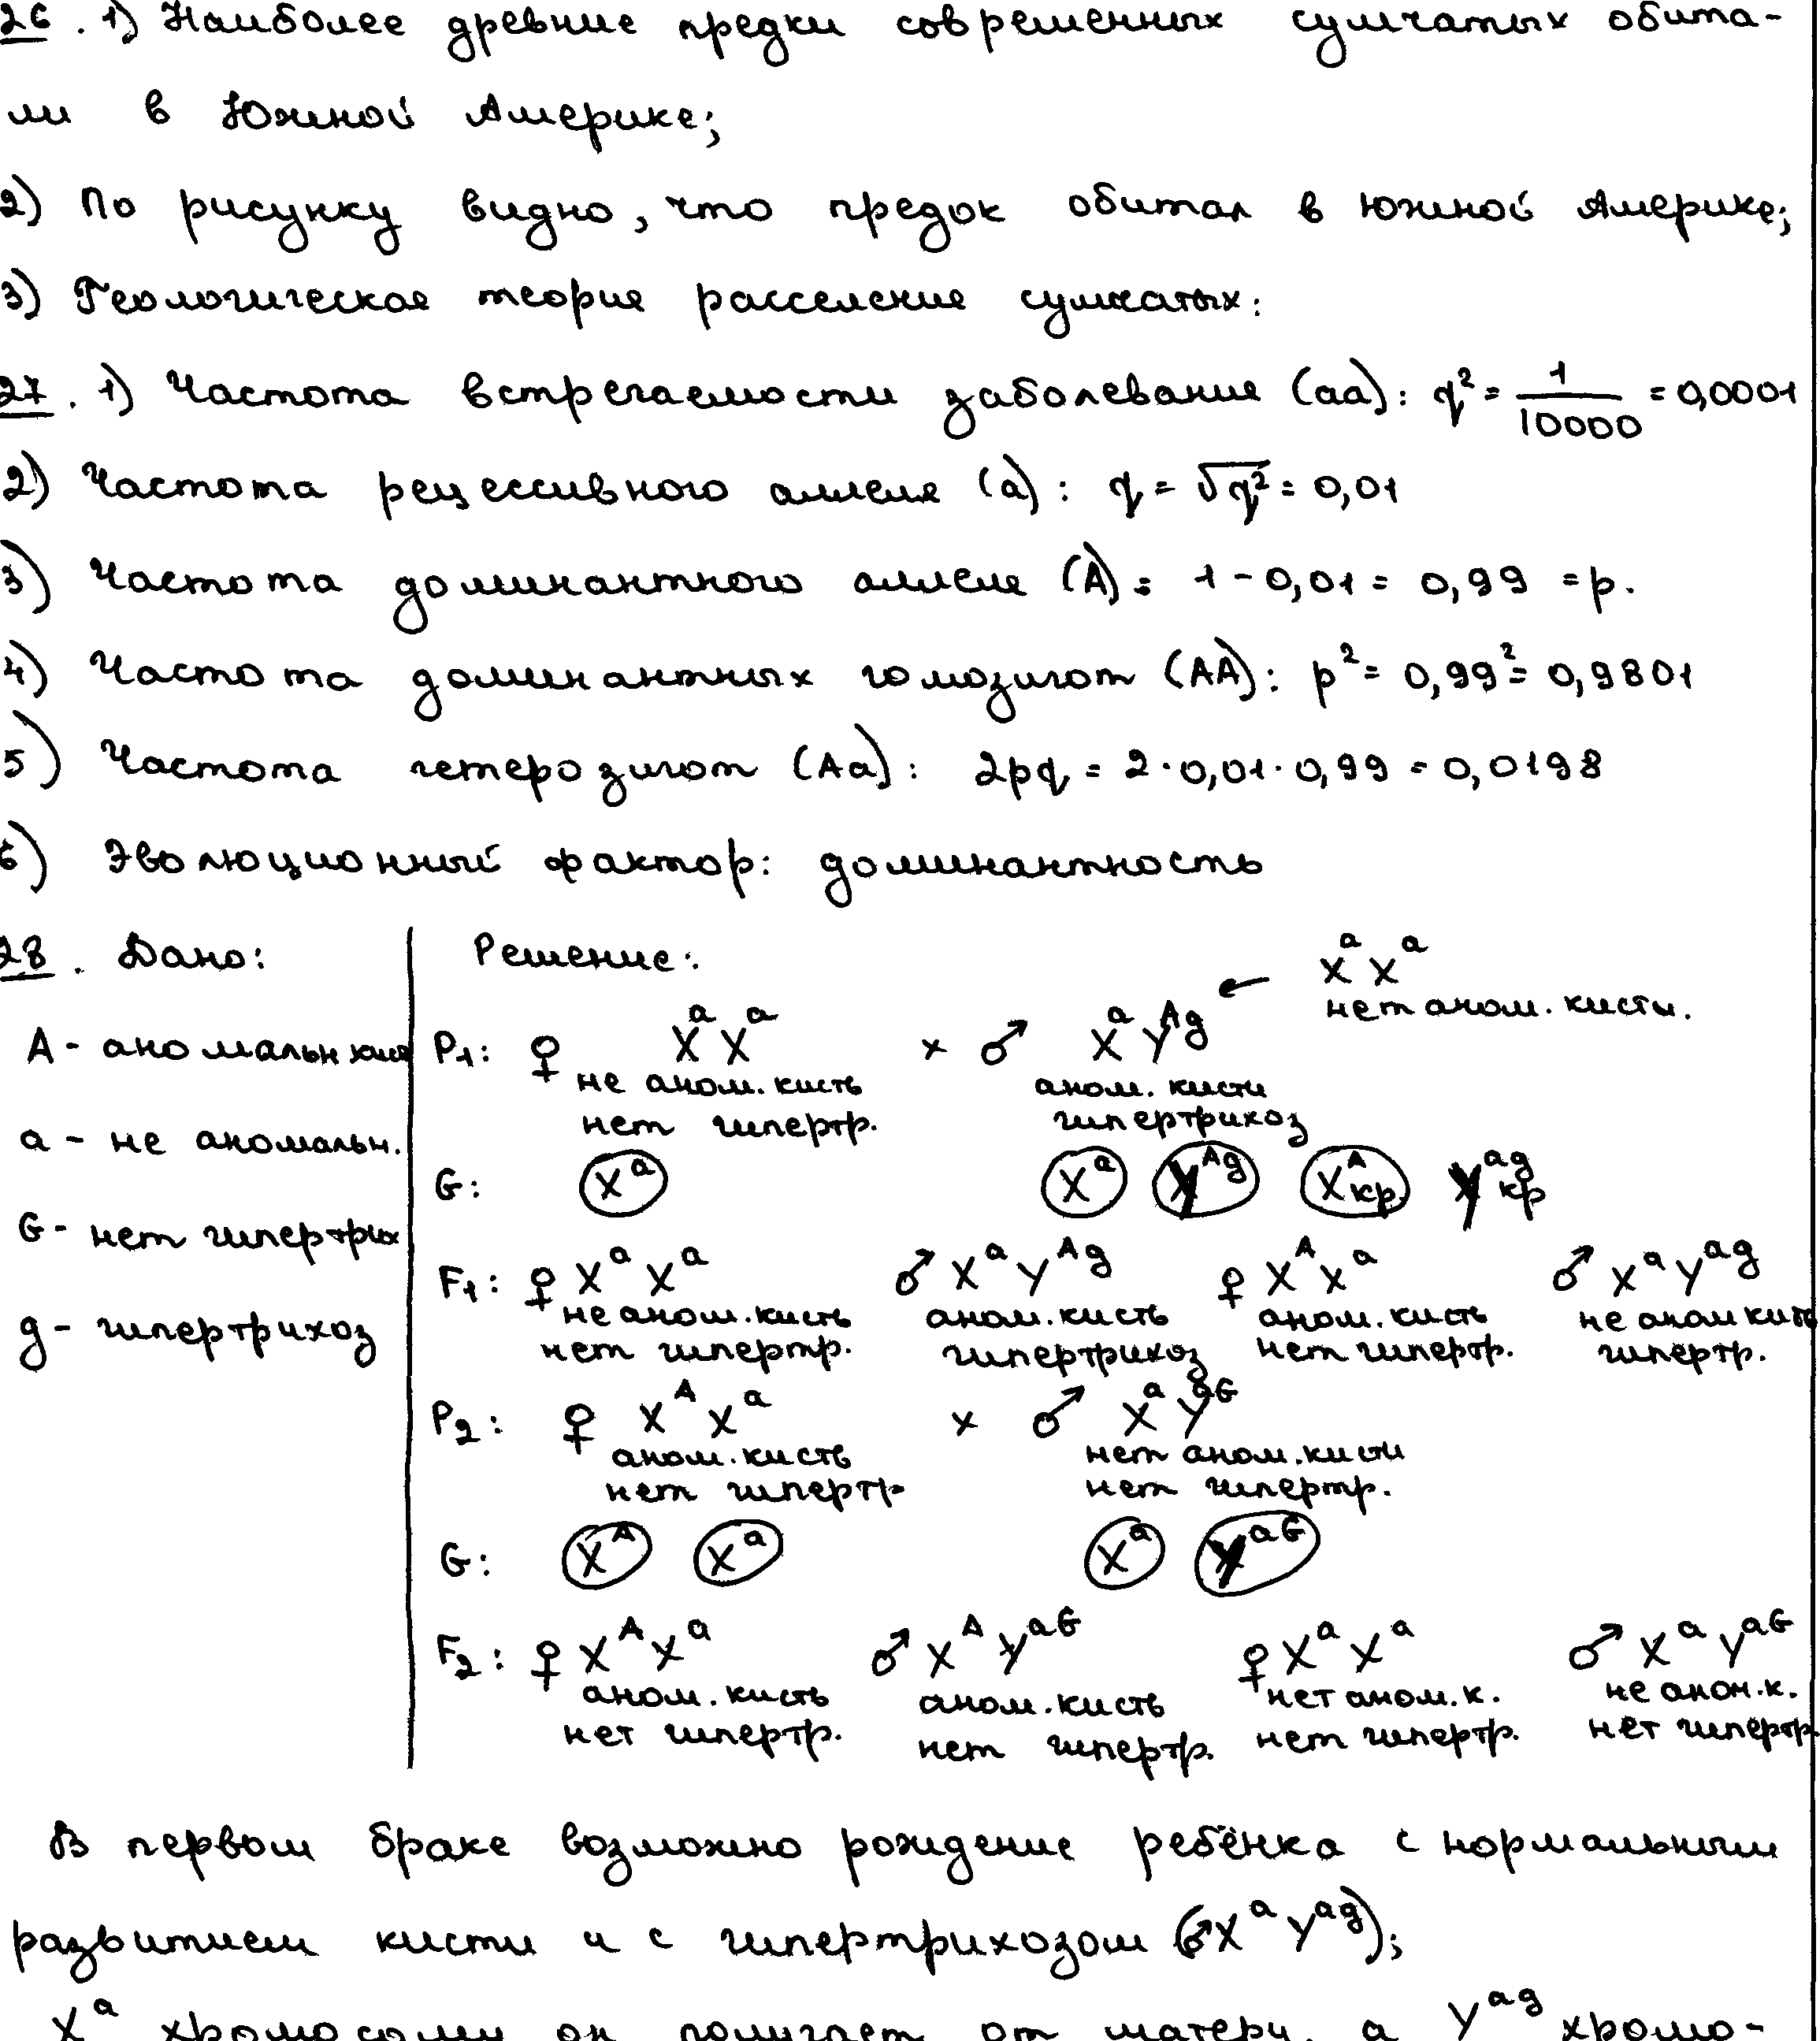 26. 1) Наиболее древние предки современных сумчатых обита-
ли в Южной Америке;
2) По рисунку видно, что предок обитал в Южной Америке;
3) Геологическая теория расселение сумчатых:
27. 1) Частота встречаемости заболевание (aa): q² = 1/10000 = 0,0001
2) Частота рецессивного аллеля (a): q = √q² = 0,01
3) Частота доминантного аллеля (A): 1 - 0,01 = 0,99 = p.
4) Частота доминантных гомозигот (AA): p² = 0,99² = 0,9801
5) Частота гетерозигот (Aa): 2pq = 2·0,01·0,99 = 0,0198
6) Эволюционный фактор: доминантность
28. Дано:
A - аномальн кист
a - не аномальн.
G - нет гипертрих
g - гипертрихоз
Решение:
XᵃXᵃ
нет аном. кисти.
P₁: ♀ XᵃXᵃ × ♂ XᵃYᴬᵍ ←
не аном. кисть аном. кисти
нет гипертр. гипертрихоз
G: Xᵃ Xᵃ Yᴬᵍ Xᴬкр. Yᵃᵍкр
F₁: ♀ XᵃXᵃ ♂ XᵃYᴬᵍ ♀ XᴬXᵃ ♂ XᵃYᵃᵍ
не аном. кисть аном. кисть аном. кисть не аном кисть
нет гипертр. гипертрихоз нет гипертр. гипертр.
P₂: ♀ XᴬXᵃ × ♂ XᵃYᵃᴳ
аном. кисть нет аном. кисти
нет гипертр. нет гипертр.
G: Xᴬ Xᵃ Xᵃ Yᵃᴳ
F₂: ♀ XᴬXᵃ ♂ XᴬYᵃᴳ ♀ XᵃXᵃ ♂ XᵃYᵃᴳ
аном. кисть аном. кисть нет аном. к. не аном. к.
нет гипертр. нет гипертр. нет гипертр. нет гипертр.
В первом браке возможно рождение ребёнка с нормальным
развитием кисти и с гипертрихозом (♂XᵃYᵃᵍ);
Xᵃ хромосому он получает от матери, а Yᵃᵍ хромо-